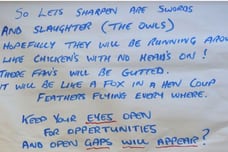 SO LETS SHARPEN ARE SWORDS
AND SLAUGHTER (THE OWLS)
HOPEFULLY THEY WILL BE RUNNING AROU
LIKE CHICKEN'S WITH NO HEAD'S ON!
THERE FAN'S WILL BE GUTTED.
IT WILL BE LIKE A FOX IN A HEN COUP
FEATHERS FLYING EVERY WHERE.
KEEP YOUR EYES OPEN
FOR OPPERTUNITIES
AND OPEN GAPS WILL APPEAR?